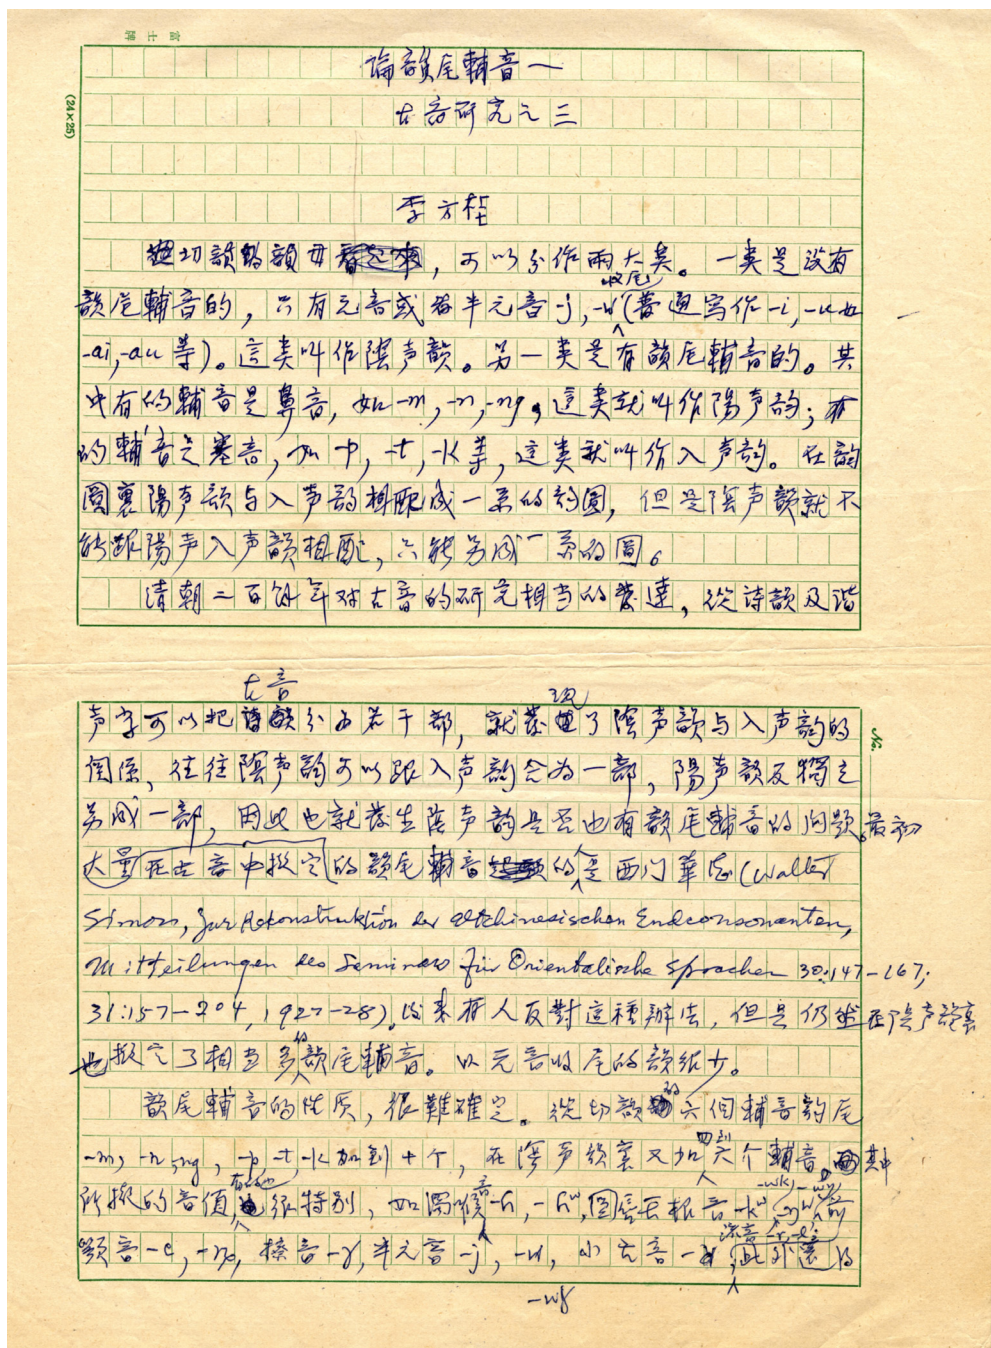 富士牌
(24×25)
論韻尾輔音一
古音研究之三
李方桂
切韻的韻母，可以分作兩大类。一类是没有
收尾
韻尾輔音的，只有元音或者半元音-j,-u(普通寫作-i,-u如
-ai,-au等)。這类叫作陰声韻。另一类是有韻尾輔音的。其
中有的輔音是鼻音，如-m,-n,-ng。這类就叫作陽声韵；有
的輔音是塞音，如-p,-t,-k等，這类就叫作入声韵。在韵
圖裏陽声韻与入声韵相配成一系的韵圖，但是陰声韻就不
能跟陽声入声韻相配，只能另成一系的圖。
清朝二百餘年对古音的研究相当的發達，從詩韻及諧
古音 現
声字可以把分为若干部，就發了陰声韻与入声韵的
関係，往往陰声韵可以跟入声韵合为一部，陽声韻反獨立
另成一部，因此也就發生陰声韵是否也有韻尾輔音的问题。最初
大量在古音中拟定的韻尾輔音的是西门華德(Walter
Simon, Zur Rekonstruktion der altchinesischen Endconsonanten,
Mitteilungen des Seminars für Orientalische Sprachen 30:147-167;
31:157-204, 1927-28)。後来有人反對這種辦法，但是仍然在陰声韵裏
也拟定了相当多的韻尾輔音。以元音收尾的韻很少。
韻尾輔音的性质，很難確定。從切韻的六個輔音韵尾
-m, -n, ng, -p, -t, -k加到十个，在陰声韻裏又加四到六个輔音。其中
所拟的音值有的也很特别，如濁喉音-ɦ, -ɦʷ, 圓唇舌根音-kʷ
No.
顎音-c, 擦音-γ, 半元音-j, -u, 小舌音 流音-r, -l; 此外還的